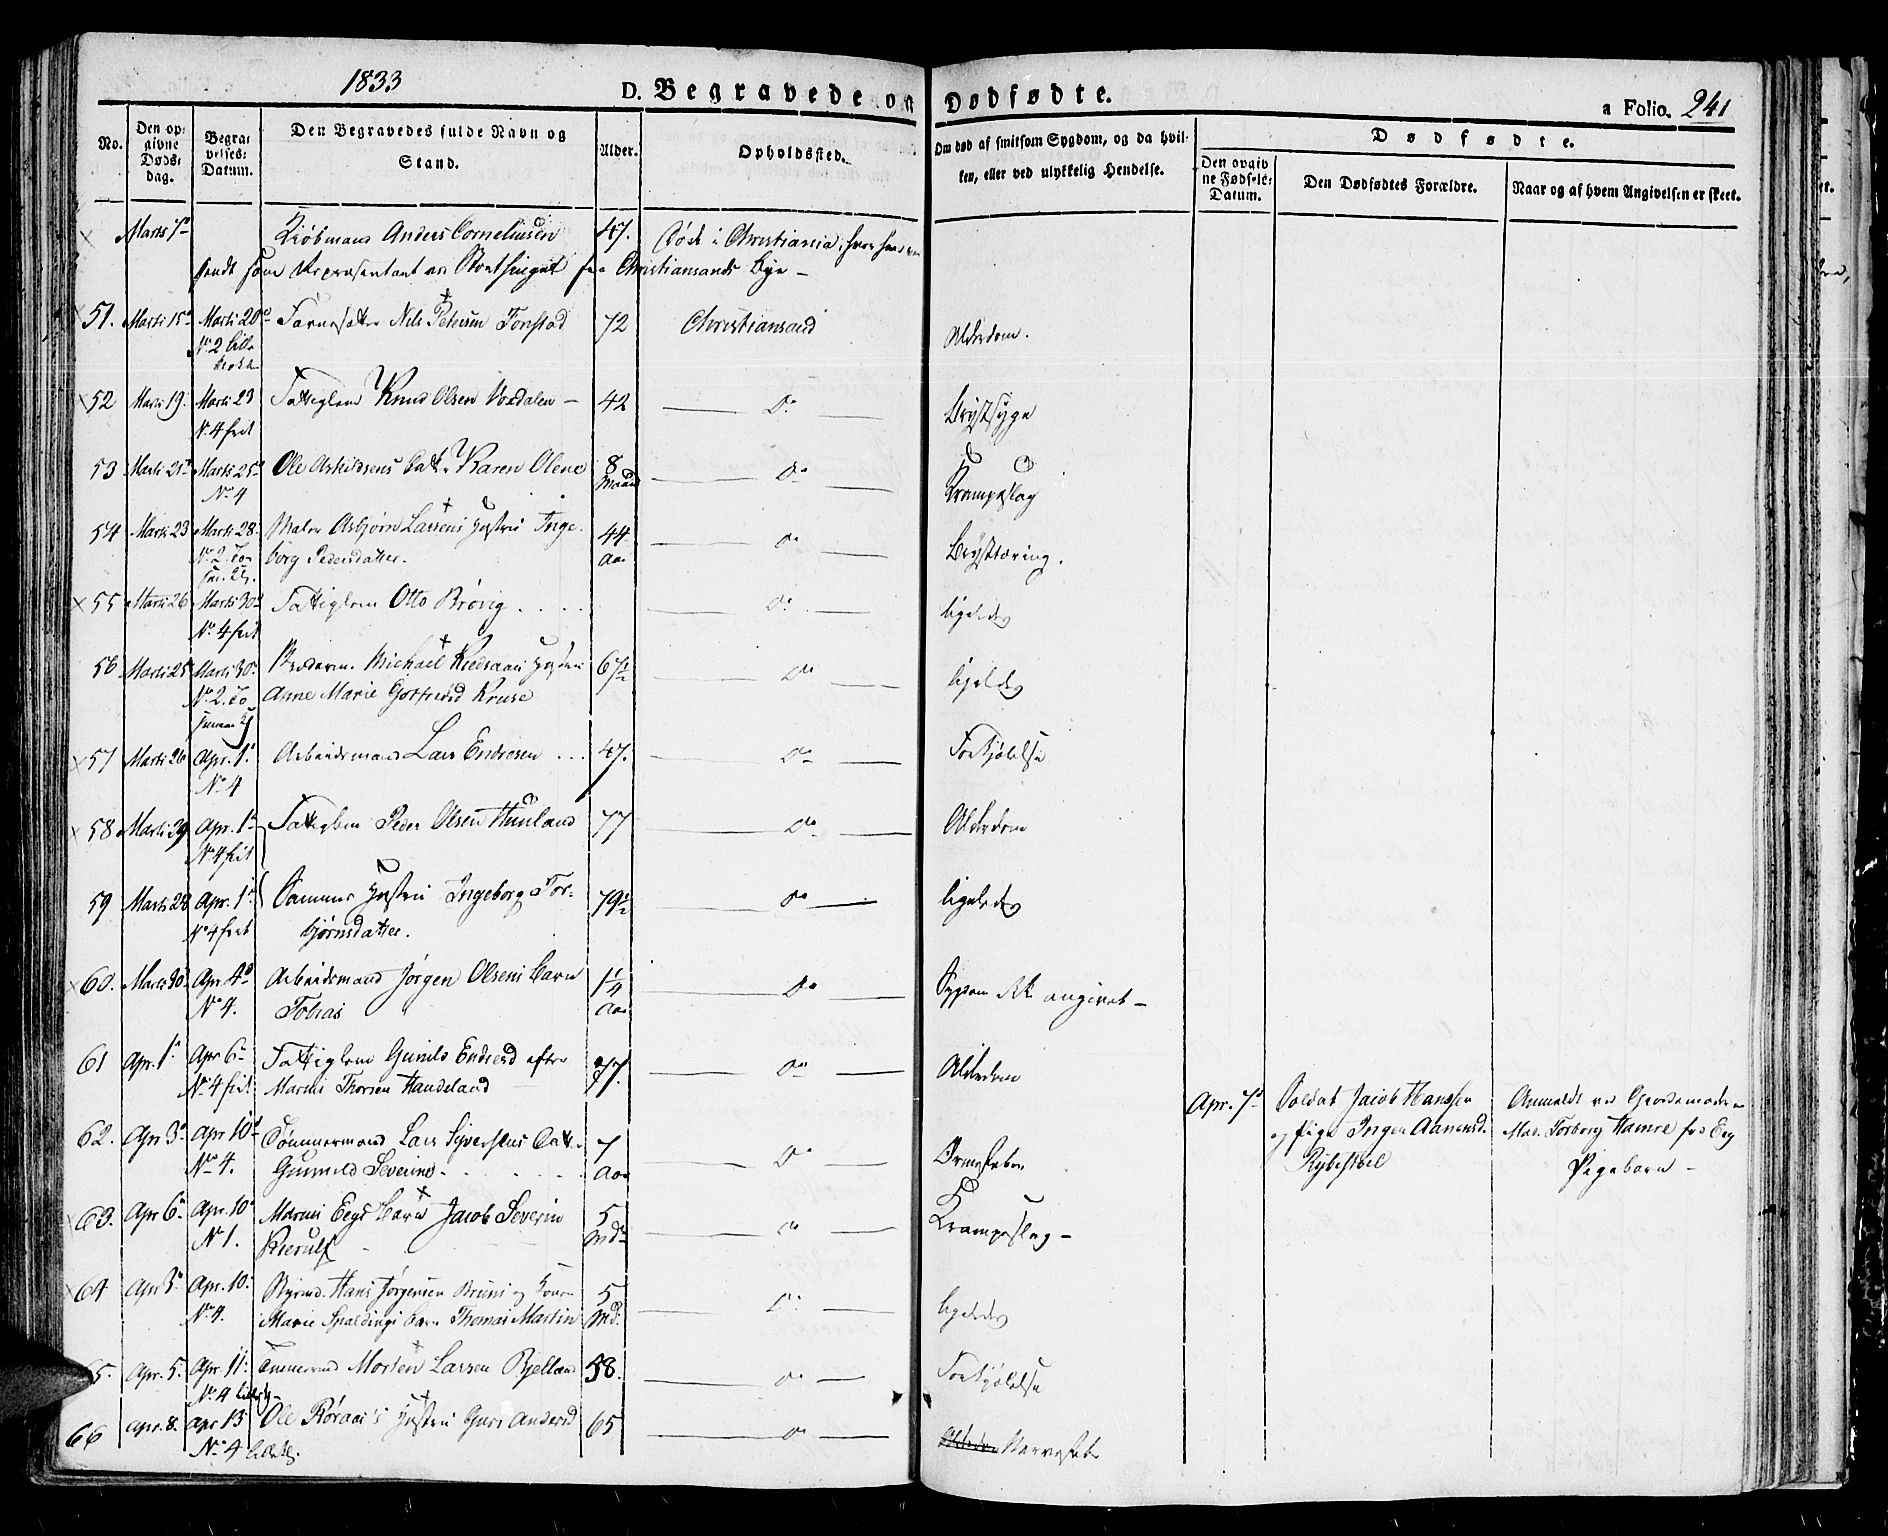 1833
D. Begravede og Dødfødte.
a Folio. 241
No.
Den opgivne Dødsdag.
Begravelses-Datum.
Den Begravedes fulde Navn og Stand.
Alder.
Opholdssted.
Om død af smitsom Sygdom, og da hvilken, eller ved ulykkelig Hendelse.
Dødfødte.
Den opgivne Fødsels-Datum.
Den Dødfødtes Forældre.
Naar og af hvem Angivelsen er skeet.
Marts 7de Kiøbmand Anders Corneliusen 47. Døde i Christiania, hvor han var
sendt som Repræsentant ved Storthinget for Christiansands Bye –
51. Marts 15de Marts 20de Nils Petersen Fonstad 72 Christiansand Alderdom.
No 2
52 Marts 19. Marts 23 Fattiglem Knud Olsen 42 Do Brystsyge
No 4 frit
53 Marts 21de Marts 25de Ole Askildsens Datter Karen Olene 8 Maaned Do Krampeslag
No 4
54 Marts 23 Marts 28. Maler Asbjørn Larsens Hustru Inge- 44 Do Brysttæring.
No 2. borg Pedersdatter. Aar
55 Marts 26 Marts 30de Fattiglem Otto Brøvig Do ligeledes
No 4 frit
56 Marts 25 Marts 30. Michael Hustru 67½ Do ligeledes
No 2. Anne Marie Gotfriedsd Kruse
57 Marts 26 Apr. 1. Arbeidsmand Lars Endresen 47. Do Forkjølelse
No 4
58 Marts 29 Apr. 1. Fattiglem Peder Olsen 77 Do Alderdom
No 4 frit
59 Marts 28 Apr. 1. Hustru Ingeborg Tor- 79½ Do ligeledes
No 4 frit bjørnsdatter.
60. Marts 30 Apr. 4de Arbeidsmand Jørgen Olsens Barn 1¼ Do Sygdom ikke angivet –
No 4. Tobias Aar
61 Apr. 1. Apr 6. Fattiglem Gunild Endresd efter 77. Do Alderdom
No 4 frit Thorsen Handeland
62. Apr 3. Apr 10de Tømmermand Lars Syversens Datter 7 Do
No 4. Gunnild Severine. Aar
Apr. 7de Soldat Jacob Hanssen
og Pige Inger Aanensd.
Anmeldt ved Gjordemoder
Mad. Torborg Hamre
Pigebarn –
63. Apr 6. Apr. 10. Barn Jacob Severin 5 Do Krampeslag –
No 1. Kierulf Mdr
64 Apr 3. Apr. 10. Styrmd. Hans Jørgensen Bruns og Kone 5 Do ligeledes
No 4. Marie Spaldings Barn Thomas Martin Md.
65. Apr. 5. Apr. 11. Tømmermd Morten Larsen Bjelland 58. Do Forkjølelse
No 4
66 Apr. 8. Apr 13 Ole Røraas's Hustru Guri Andersd 65 Do
No 4